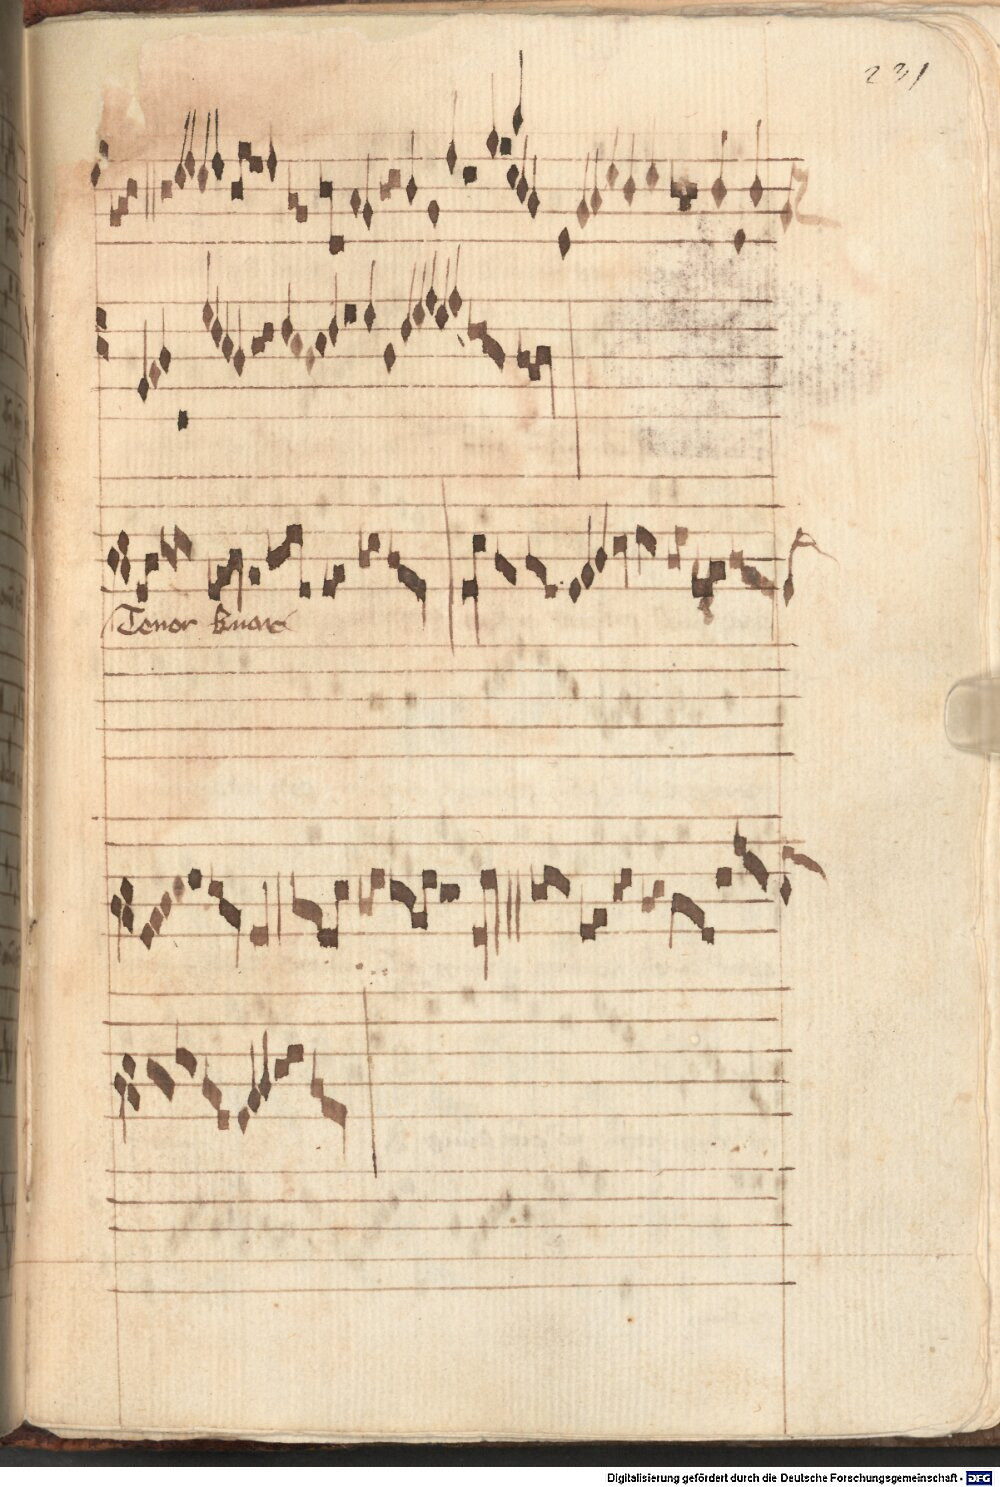 231
Tenor
Digitalisierung gefördert durch die Deutsche Forschungsgemeinschaft - DFG